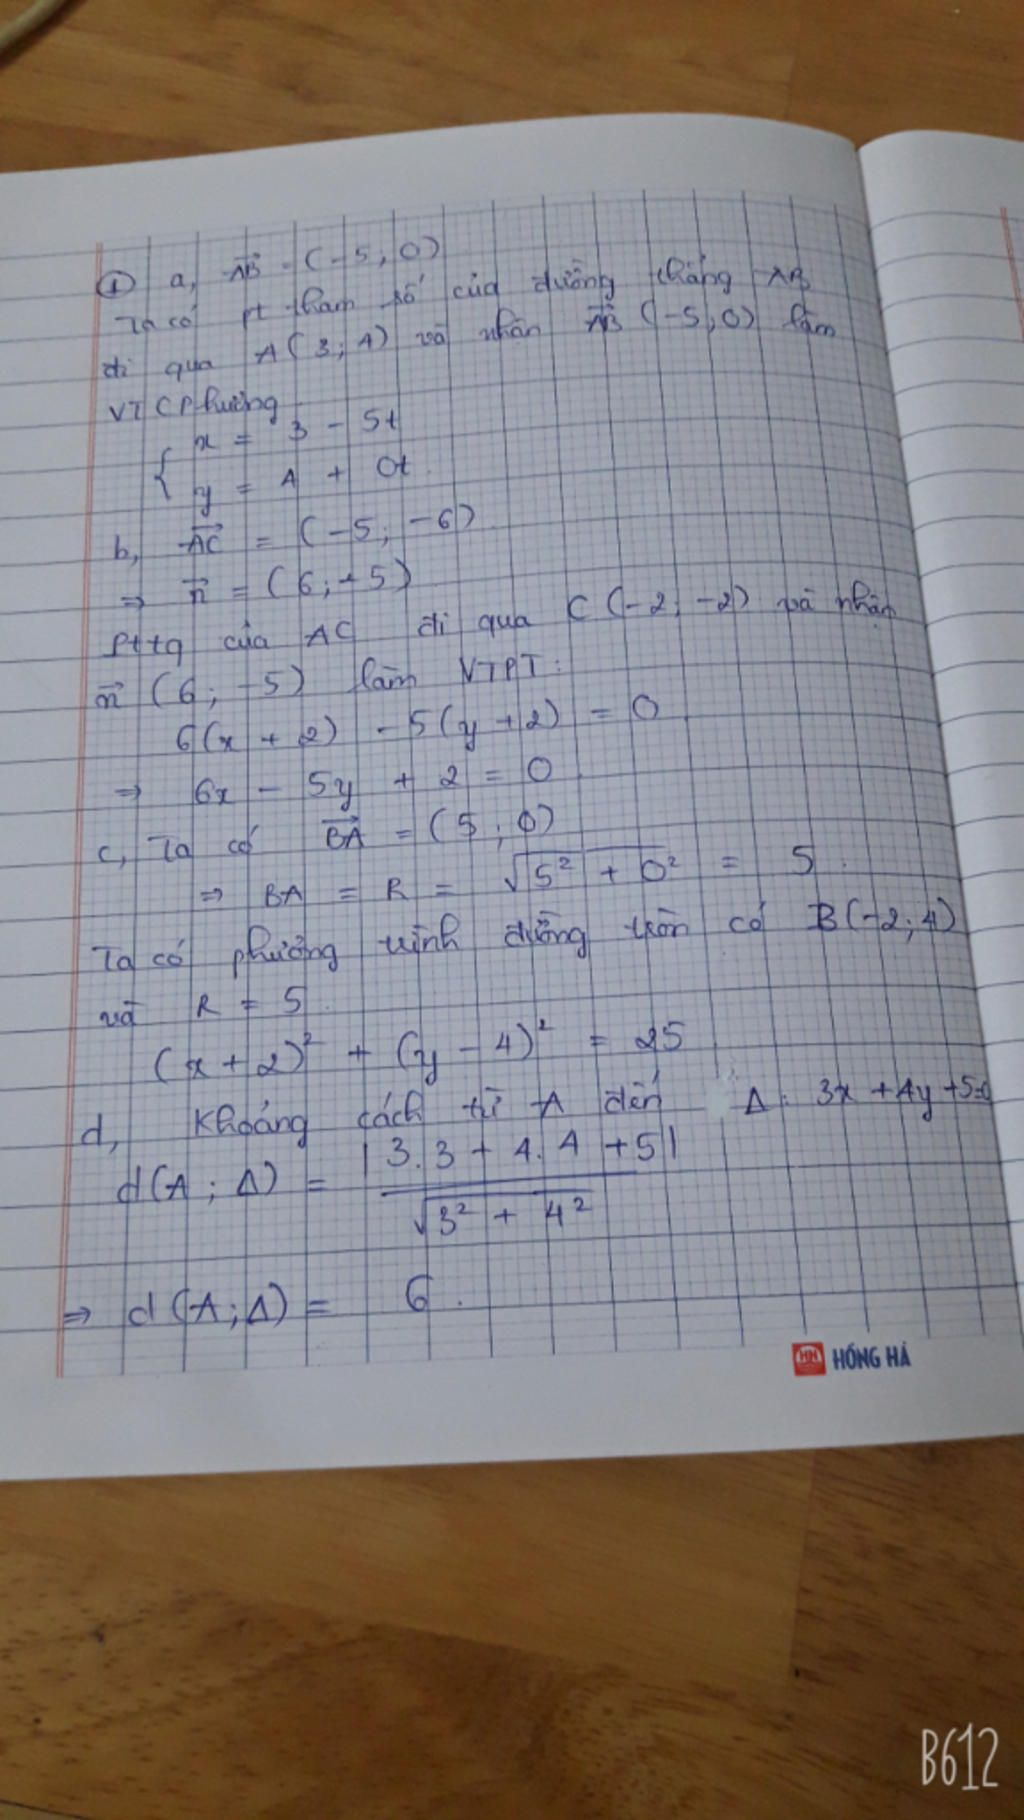 ① a, AB = (-5; 0)
Ta có pt tham số của đường thẳng AB
đi qua A(3; 4) và nhận AB (-5; 0) làm
VTCPhương
{ x = 3 - 5t
y = 4 + 0t
b, AC = (-5; -6)
⇒ n = (6; -5)
Pttq của AC đi qua C(-2; -2) và nhận
n (6; -5) làm VTPT:
6(x + 2) - 5(y + 2) = 0
⇒ 6x - 5y + 2 = 0
c, Ta có BA = (5; 0)
⇒ BA = R = √5² + 0² = 5.
Ta có phương trình đường tròn có B(-2; 4)
và R = 5.
(x + 2)² + (y - 4)² = 25
d, Khoảng cách từ A đến Δ: 3x + 4y + 5=0
d(A; Δ) = |3.3 + 4.4 + 5| / √3² + 4²
⇒ d(A; Δ) = 6.
HH HỒNG HÀ
B612